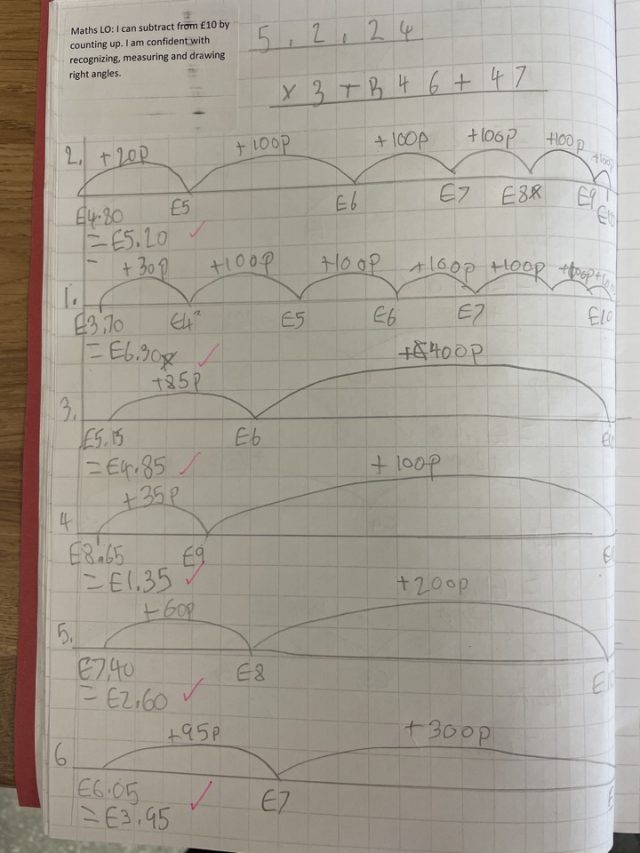 Maths LO: I can subtract from £10 by
counting up. I am confident with
recognizing, measuring and drawing
right angles.
5, 2, 24
x 3 + B 46 + 47
2. +20p +100p +100p +100p +100p +100p
£4.80 £5 £6 £7 £8 £9 £10
= £5.20
=
1. +30p +100p +100p +100p +100p
£3.70 £4 £5 £6 £7 £10
= £6.30
3. +85p +400p
£5.15 £6
= £4.85
4 +35p +100p
£8.65 £9
= £1.35
5. +60p +200p
£7.40 £8
= £2.60
6 +95p +300p
£6.05 £7
= £3.95